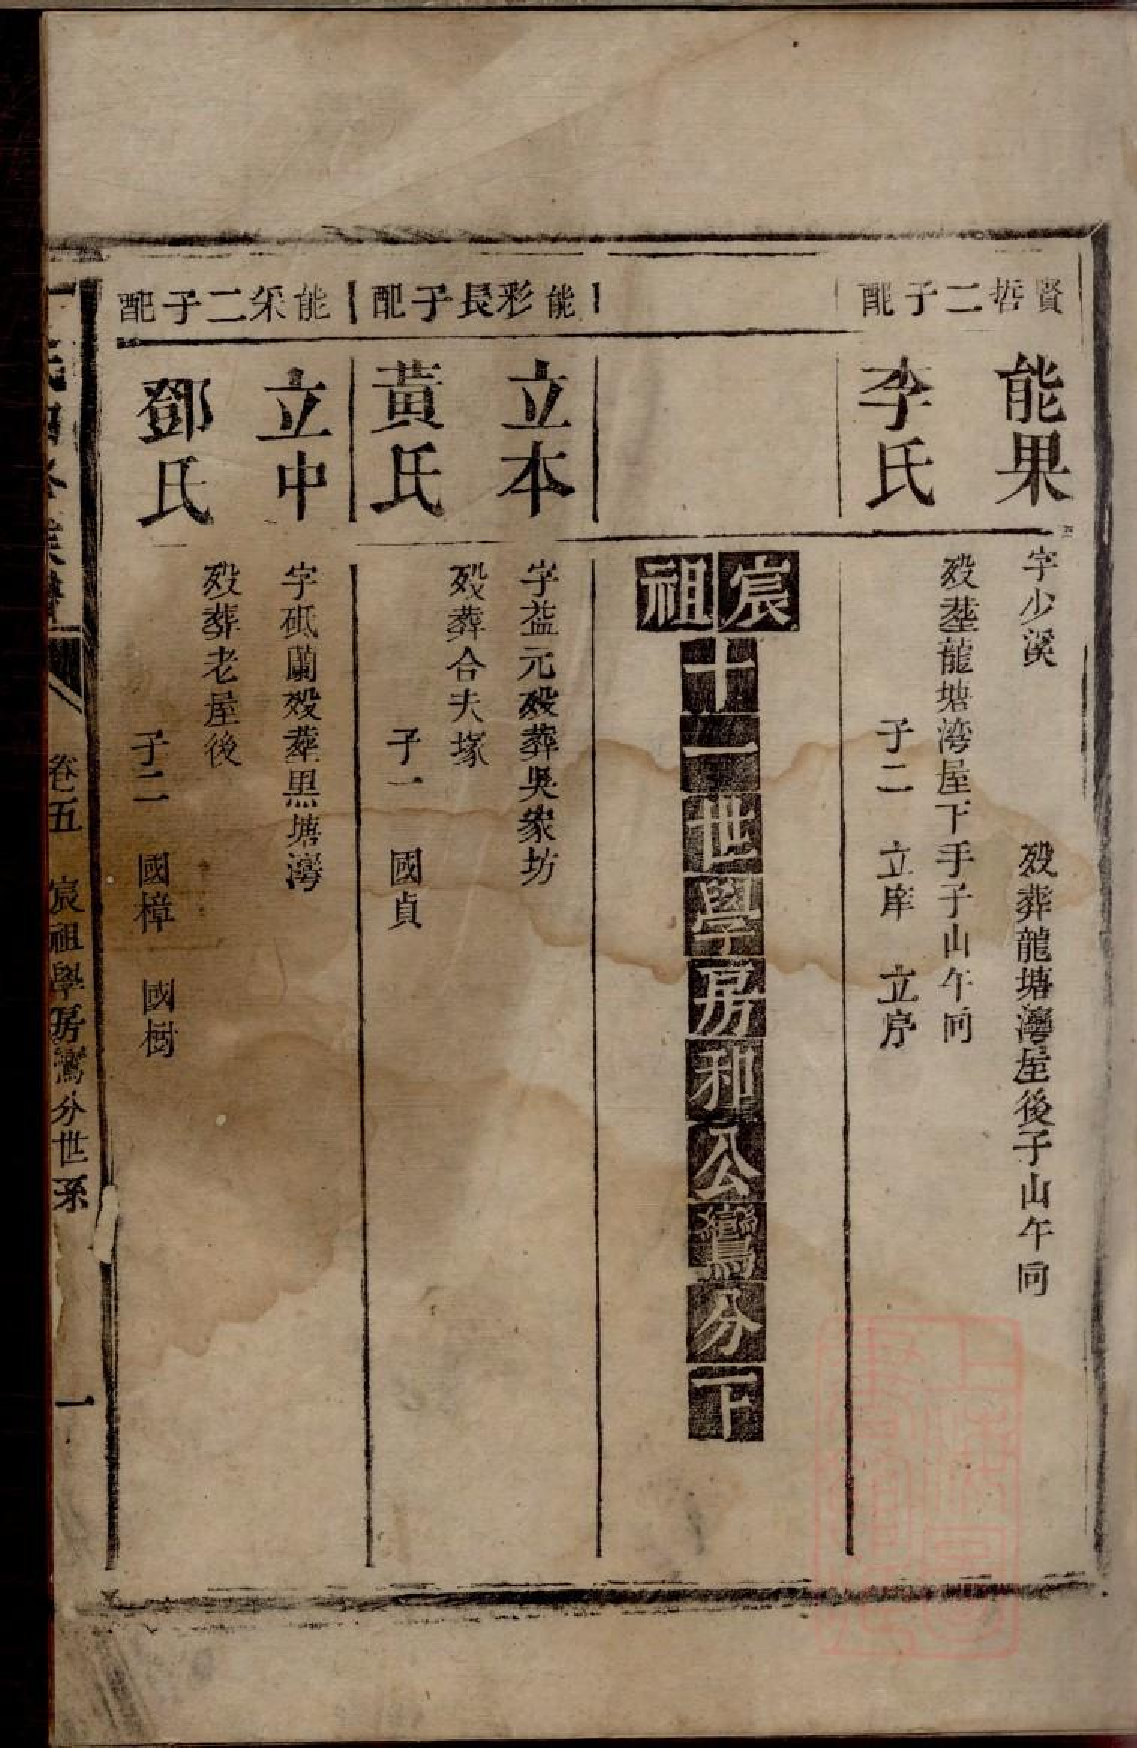 賢哲二子配
能果
字少溪 歿葬龍塘灣屋後子山午向
李氏
歿塟龍塘湾屋下手子山午向
子二 立庠 立序
宸祖
十一世學房和公鸞分下
能彩長子配
立本
字益元歿葬吳家坊
黃氏
歿葬合夫塚
子一 國貞
能采二子配
立中
字砥蘭歿塟黑塘灣
鄧氏
歿葬老屋後
子二 國樟 國樹
卷五 宸祖學房鸞分世系 一